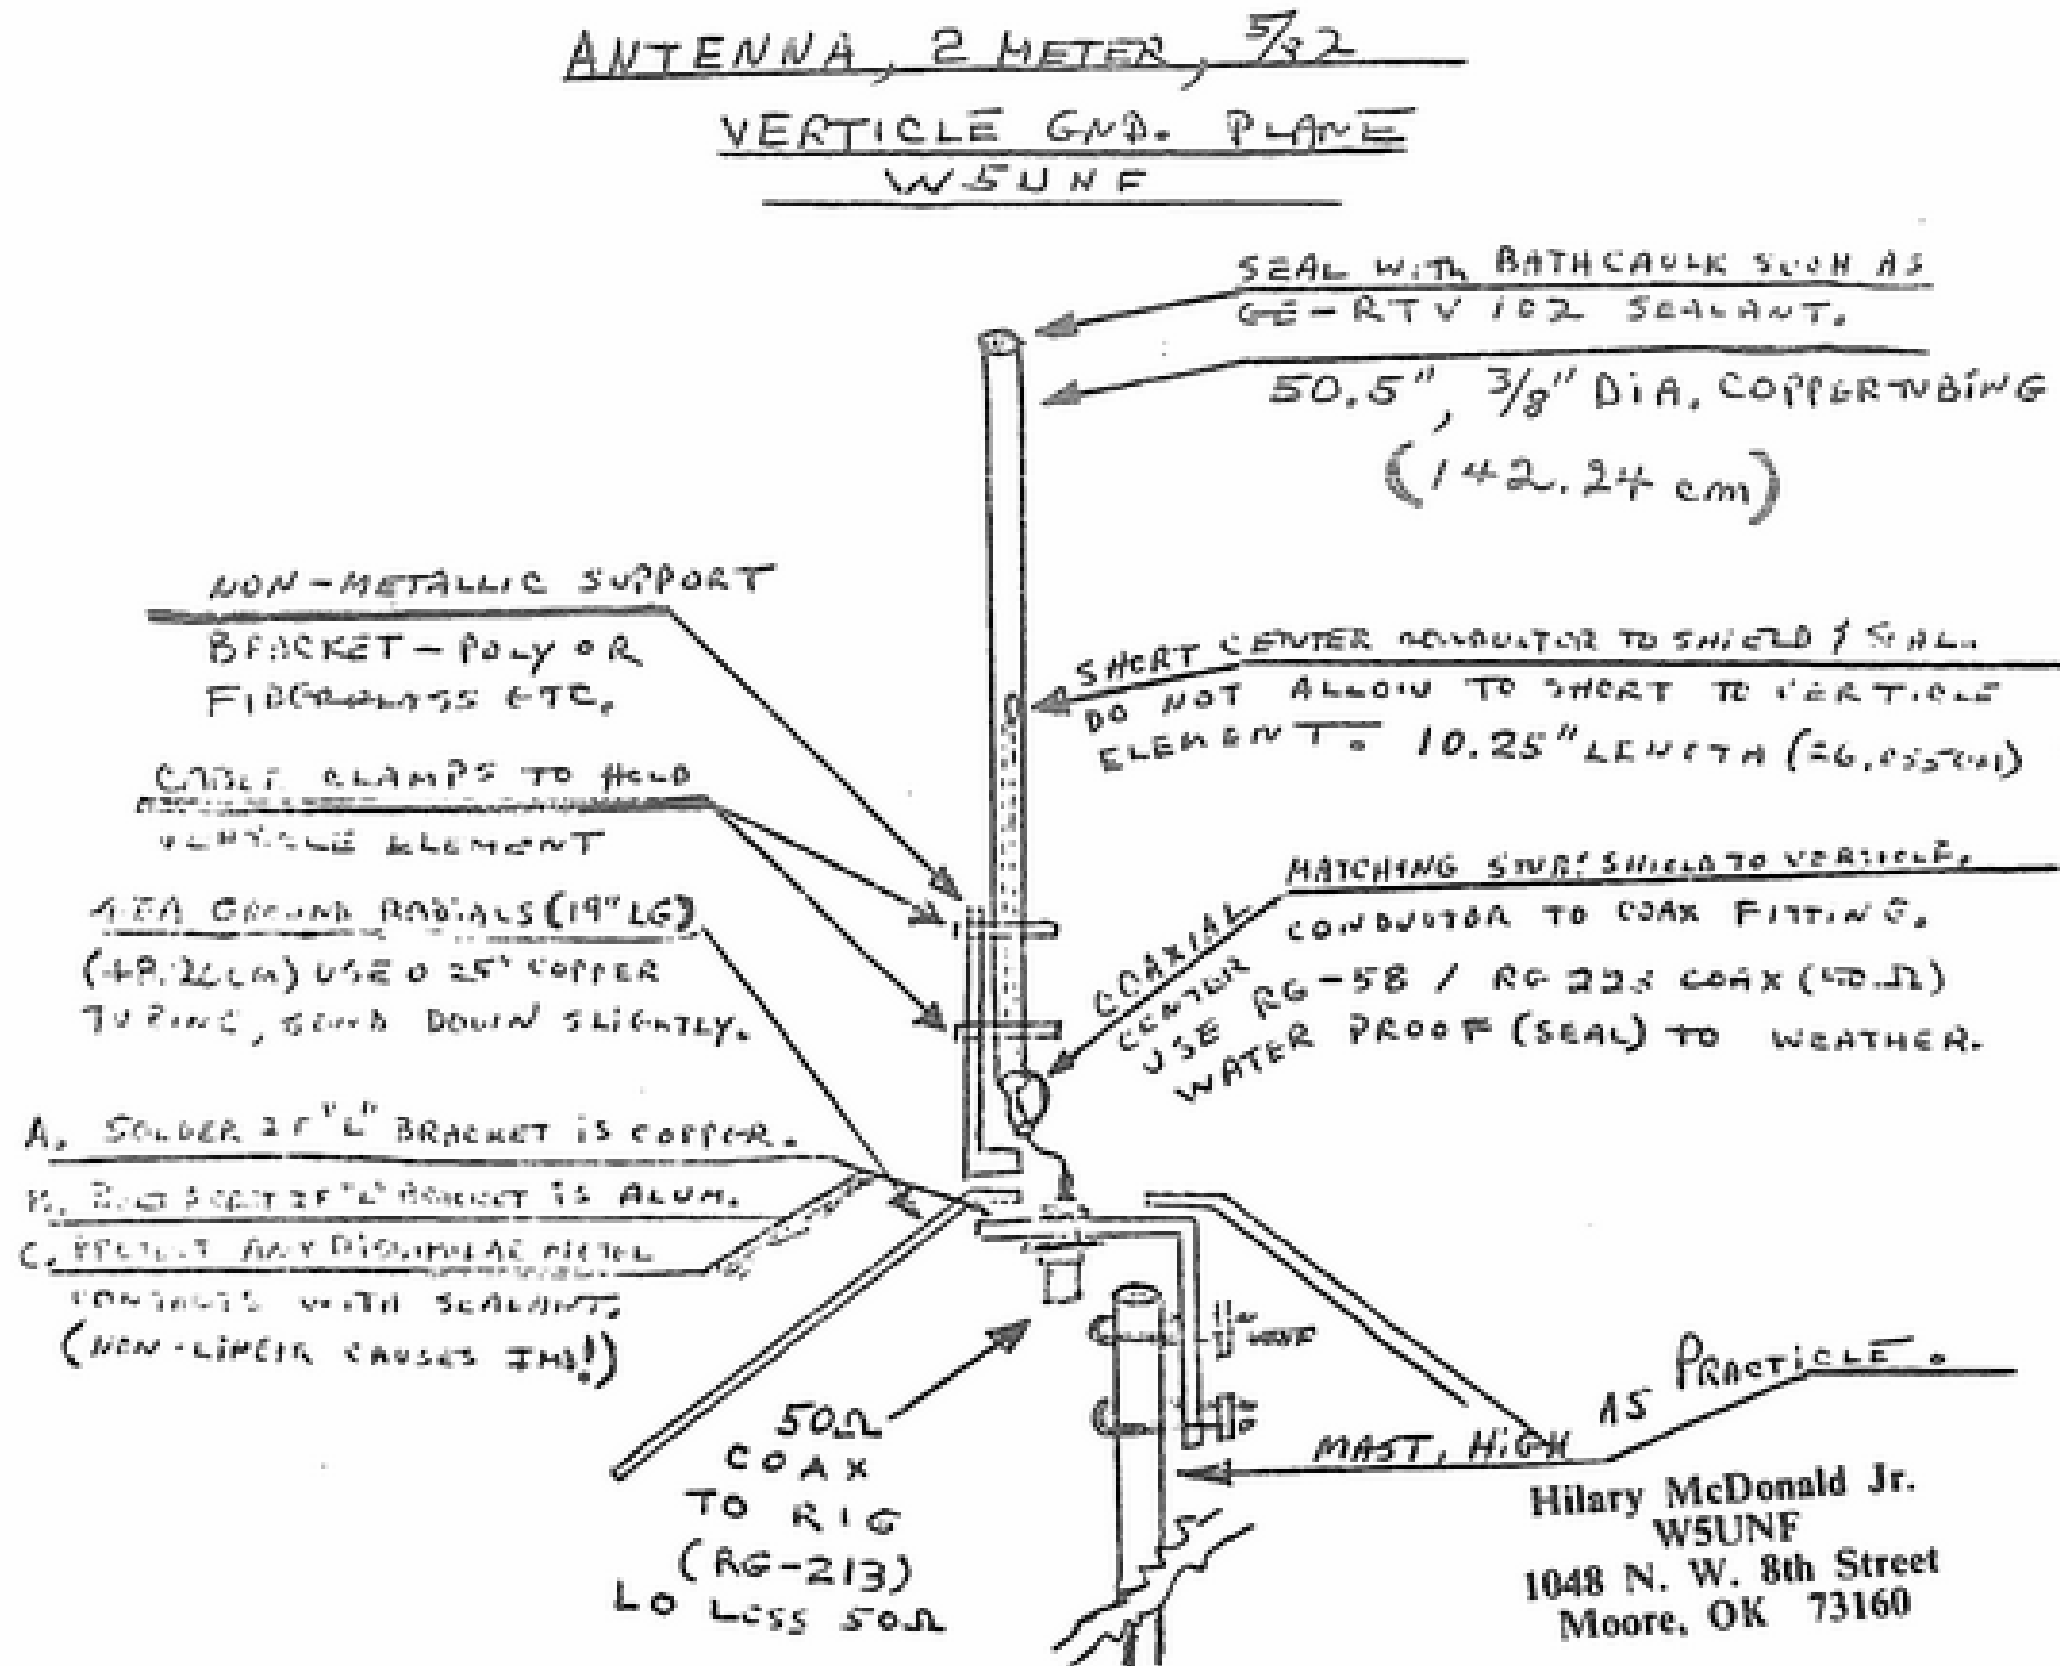 ANTENNA, 2 METER, 5/8 λ
VERTICLE GND. PLANE
W5UNF
SEAL WITH BATHCAULK SUCH AS
GE-RTV 102 SEALANT.
50.5", 3/8" DIA. COPPER TUBING
(142.24 cm)
NON-METALLIC SUPPORT
BRACKET - POLY OR
FIBERGLASS ETC.
SHORT CENTER CONDUCTOR TO SHIELD & SEAL.
DO NOT ALLOW TO SHORT TO VERTICLE
ELEMENT. 10.25" LENGTH (26.035cm)
CABLE CLAMPS TO HOLD
VERTICLE ELEMENT
MATCHING STUB: SHIELD TO VERTICLE.
COAXIAL
CENTER CONDUCTOR TO COAX FITTING.
USE RG-58 / RG 223 COAX (50Ω)
WATER PROOF (SEAL) TO WEATHER.
4 EA GROUND RADIALS (19" LG)
(48.26cm) USE 0.25" COPPER
TUBING, BEND DOWN SLIGHTLY.
A. SOLDER IF "L" BRACKET IS COPPER.
B. IF "L" BRACKET IS ALUM.
C. PROTECT ANY DISSIMILAR METAL
CONTACTS WITH SEALANT.
(NON-LINEAR CAUSES IMD!)
50Ω
COAX
TO RIG
(RG-213)
LO LOSS 50Ω
MAST, HIGH AS PRACTICLE.
Hilary McDonald Jr.
W5UNF
1048 N. W. 8th Street
Moore, OK 73160